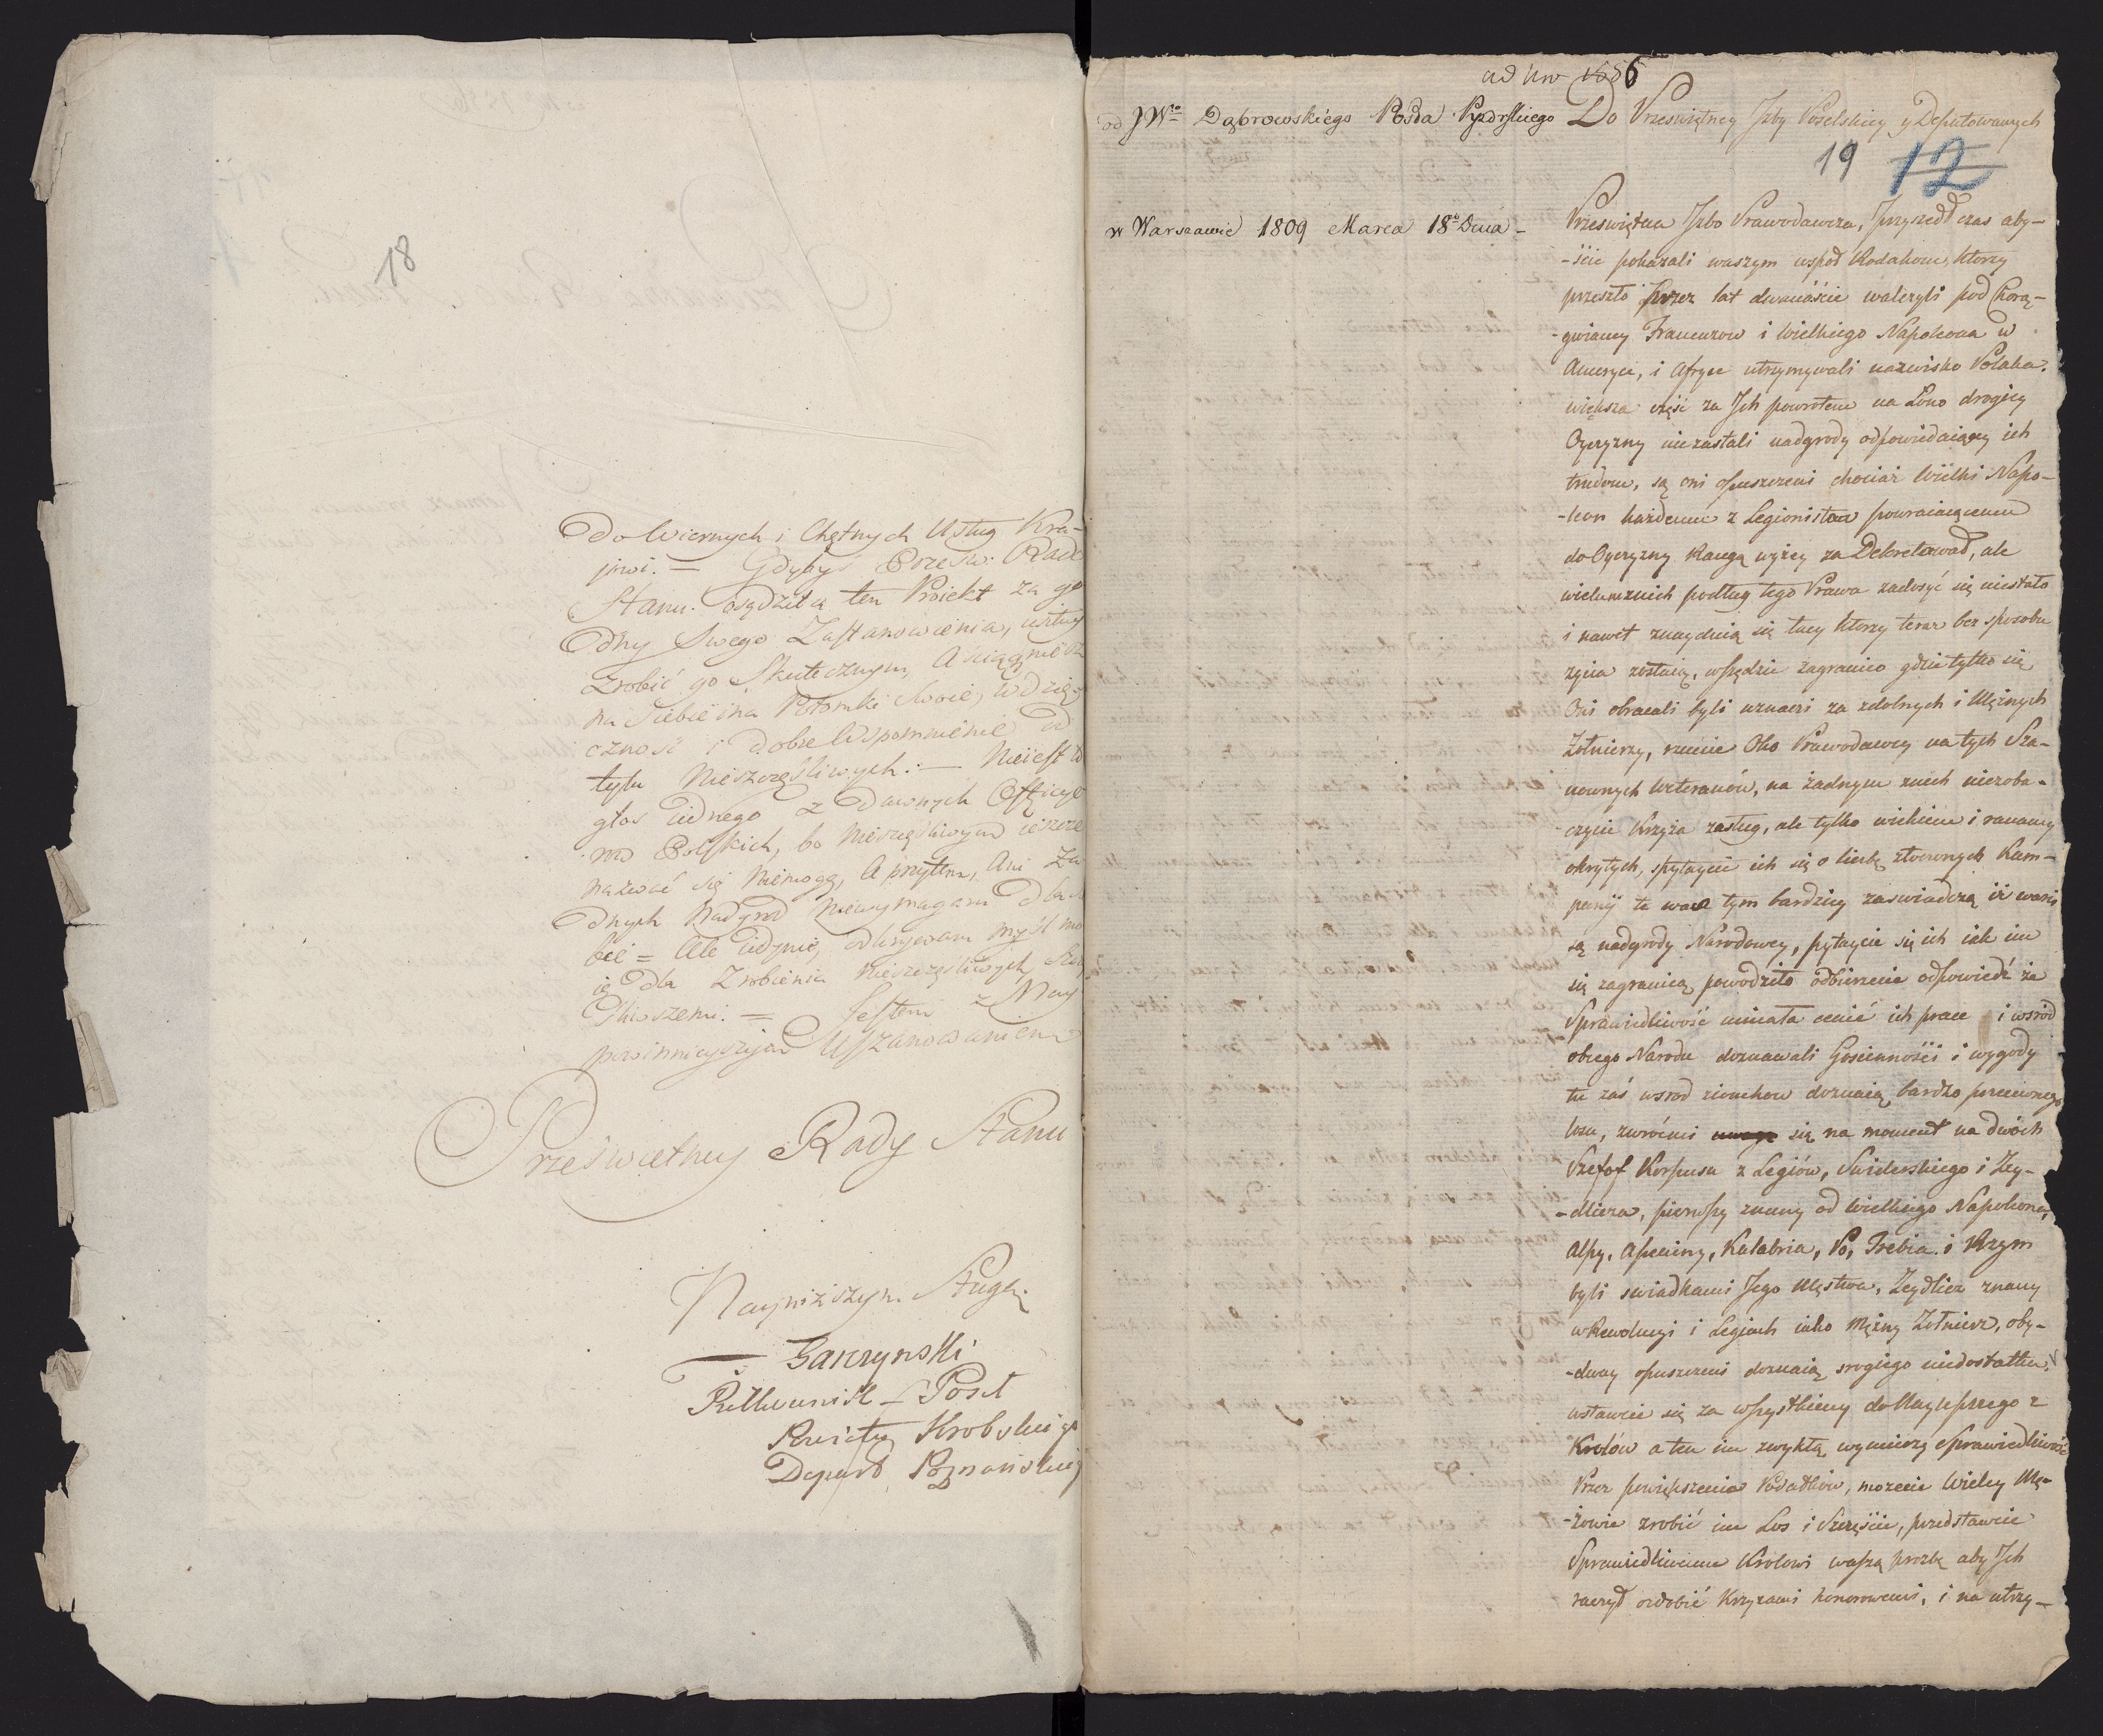 18
Do Wiernych i Chętnych Usług Kra-
jowi. — Gdyby Prześw: Rade
Stanu. osądziła ten Proiekt za go
dny Swego Zastanowienia,
Zrobić go Skutecznym, A ściągnie
na Siebie i na Potomki Swoie, wdzię-
czność i dobre Wspomnienie
tylu Nieszczęśliwych: — Nieiest
głos iednego z Dawnych Officye
row Polskich, bo Nieszczęśliwym ieszcze
nazwać się Niemogę, A przytem, Ani Ża
dnych Nadgrod Niewymagam Dla
bie = Ale iedynie, odkrywam myśl mo
ię Dla Zrobienia Nieszczęśliwych
śliwszemi. = Jestem z Nay
powinnieyszym Uszanowaniem
Prześwietney Rady Stanu
Nayniższym Sługą.
Garczynski
Pułkownik – Poseł
Powiatu Krobskiego
Depart Poznańskieg
ad Nro 1686
od JWo Dąbrowskiego Posła Pyzdrskiego Do Przeświętney Izby Poselskiey y Deputowanych
19 12
w Warszawie 1809 Marca 18o Dnia –
Przeświętna Izbo Prawodawcza, Przyszedł czas aby-
-ście pokazali waszym wspoł Rodakom, ktorzy
przeszło przez lat dwanaście walczyli pod Chorą-
-gwiamy Francuzow i Wielkiego Napoleona w
Ameryce, i Afryce utrzymywali nazwisko Polaka.
większa część za Ich powrotem na Łono drogiey
Oyczyzny niezastali nadgrody odpowiedaiącey ich
trudom, są oni opuszczeni chociaż Wielki Napo-
-leon każdemu z Legionistow powracaiącemu
do Oyczyzny Rangą wyżey za Dekretował, ale
wielum znich podług tego Prawa zadosyć się niestało
i nawet znayduią się tacy ktorzy teraz bez sposobu
życia zostaią, wszędzie zagranico gdzie tylko się
Oni obracali byli uznaci za zdolnych i Mężnych
Żołnierzy, rzućcie Oko Prawodawcy na tych Sza-
nownych Weteranów, na żadnym znich niezoba-
czycie Krzyża zasług, ale tylko wiekiem i ranamy
okrytych, spytaycie ich się o liczbę złoconych Kam-
panij te was tym bardziey zaswiadczą iż warci
są nadgrody Narodowey, pytaycie się ich iak im
się zagranicą powodziło odbierzecie odpowiedź że
Sprawiedliwość umiata cenić ich prace i wsród
obcego Narodu doznawali Gościnności i wygody
tu zaś wsrod ziomkow doznaią bardzo przeciwnego
losu, zwróćmi się na moment na dwóch
Szefof Korpusu z Legiów, Swiderskiego i Zey-
-dlicza, pierwszy znany od wielkiego Napoleona,
Alpy, Apeniny, Kalabria, Po, Trebia i Rzym
byli swiadkami Jego Męstwa, Zeydlicz znany
w Rewolucyi i Legiach iako Mężny Żołnierz, oby-
-dway opuszczeni doznaią srogiego niedostatku,
wstawcie się za wszystkiemy do Naylepszego z
Krolów a ten im zwykłą wymierzy Sprawiedliwość
Przez powiększenie Podatków, możecie Wielcy Mę-
-żowie zrobić im Los i Szczęście, przedstawcie
Sprawiedliwemu Krolowi waszą prozbę aby Ich
raczył ozdobić Krzyżami honorowemi, i na utrzy-